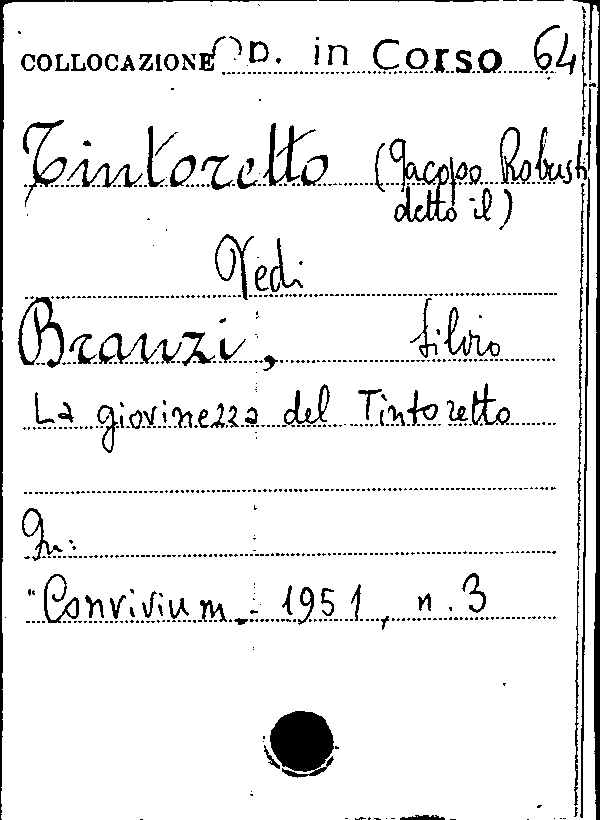 COLLOCAZIONE Op. in Corso 64
Tintoretto (Jacopo Robusti
detto il)
Vedi
Branzi, Silvio
La giovinezza del Tintoretto
In:
"Convivium - 1951, n. 3